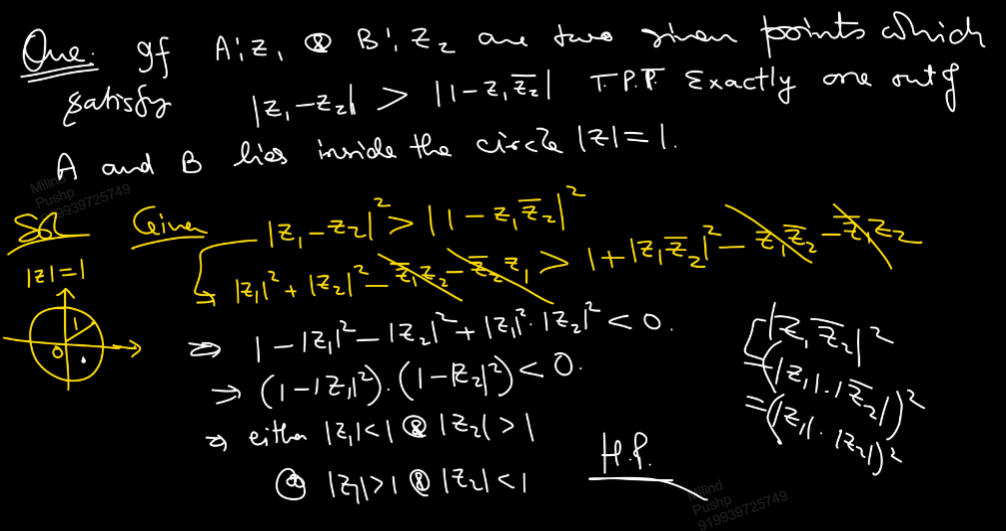 Que: If A: z₁ & B: z₂ are two given points which
satisfy |z₁-z₂| > |1-z₁z̅₂| T.P.T. Exactly one out of
A and B lies inside the circle |z|=1.
Milind
Pushp
919939725749
Sol Given |z₁-z₂|² > |1-z₁z̅₂|²
|z|=1
|z₁|²+|z₂|²-z̅₁z₂-z̅₂z₁ > 1+|z₁z̅₂|²-z₁z̅₂-z̅₁z₂
1
0
⇒ 1-|z₁|²-|z₂|²+|z₁|²·|z₂|² < 0.
⇒ (1-|z₁|²)·(1-|z₂|²) < 0.
⇒ either |z₁|<1 & |z₂|>1
|z₁|>1 & |z₂|<1
H.P.
|z₁z̅₂|²
=(|z₁|·|z̅₂|)²
=(|z₁|·|z₂|)²
Milind
Pushp
919939725749